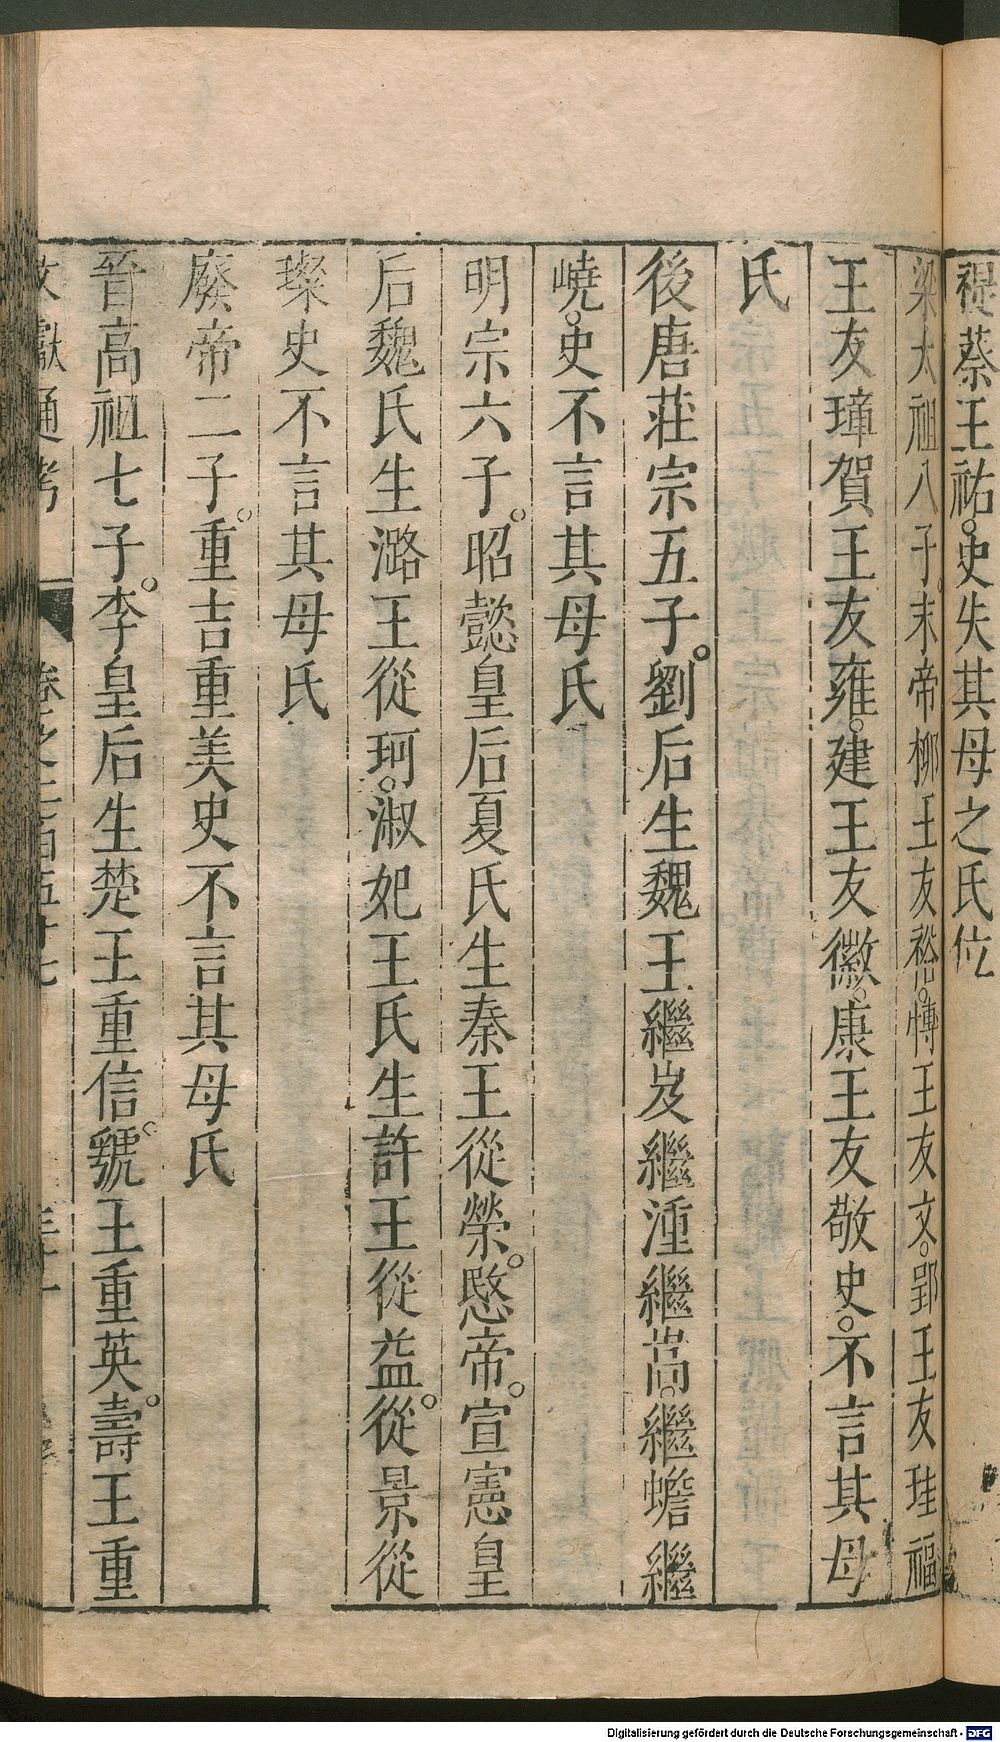 禔蔡王祐史失其母之氏位
梁太祖八子末帝郴王友裕愽王友文郢王友珪福
王友璋賀王友雍建王友徽康王友敬史不言其母
氏
後唐莊宗五子劉后生魏王繼岌繼潼繼嵩繼蟾繼
嶢史不言其母氏
明宗六子昭懿皇后夏氏生秦王從榮愍帝宣憲皇
后魏氏生潞王從珂淑妃王氏生許王從益從景從
璨史不言其母氏
廢帝二子重吉重美史不言其母氏
晉高祖七子李皇后生楚王重信虢王重英壽王重
文獻通考 卷之二百五十七
Digitalisierung gefördert durch die Deutsche Forschungsgemeinschaft - DFG